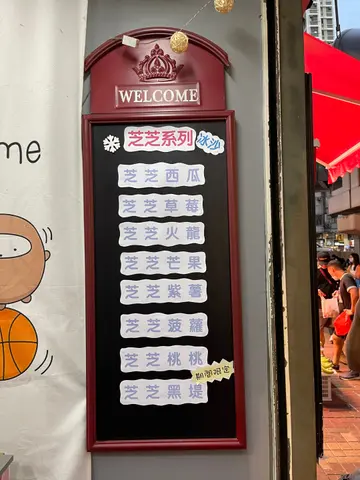 WELCOME
芝芝系列 冰沙
芝芝西瓜
芝芝草莓
芝芝火龍
芝芝芒果
芝芝紫薯
芝芝菠蘿
芝芝桃桃
期間限定
芝芝黑堤
me